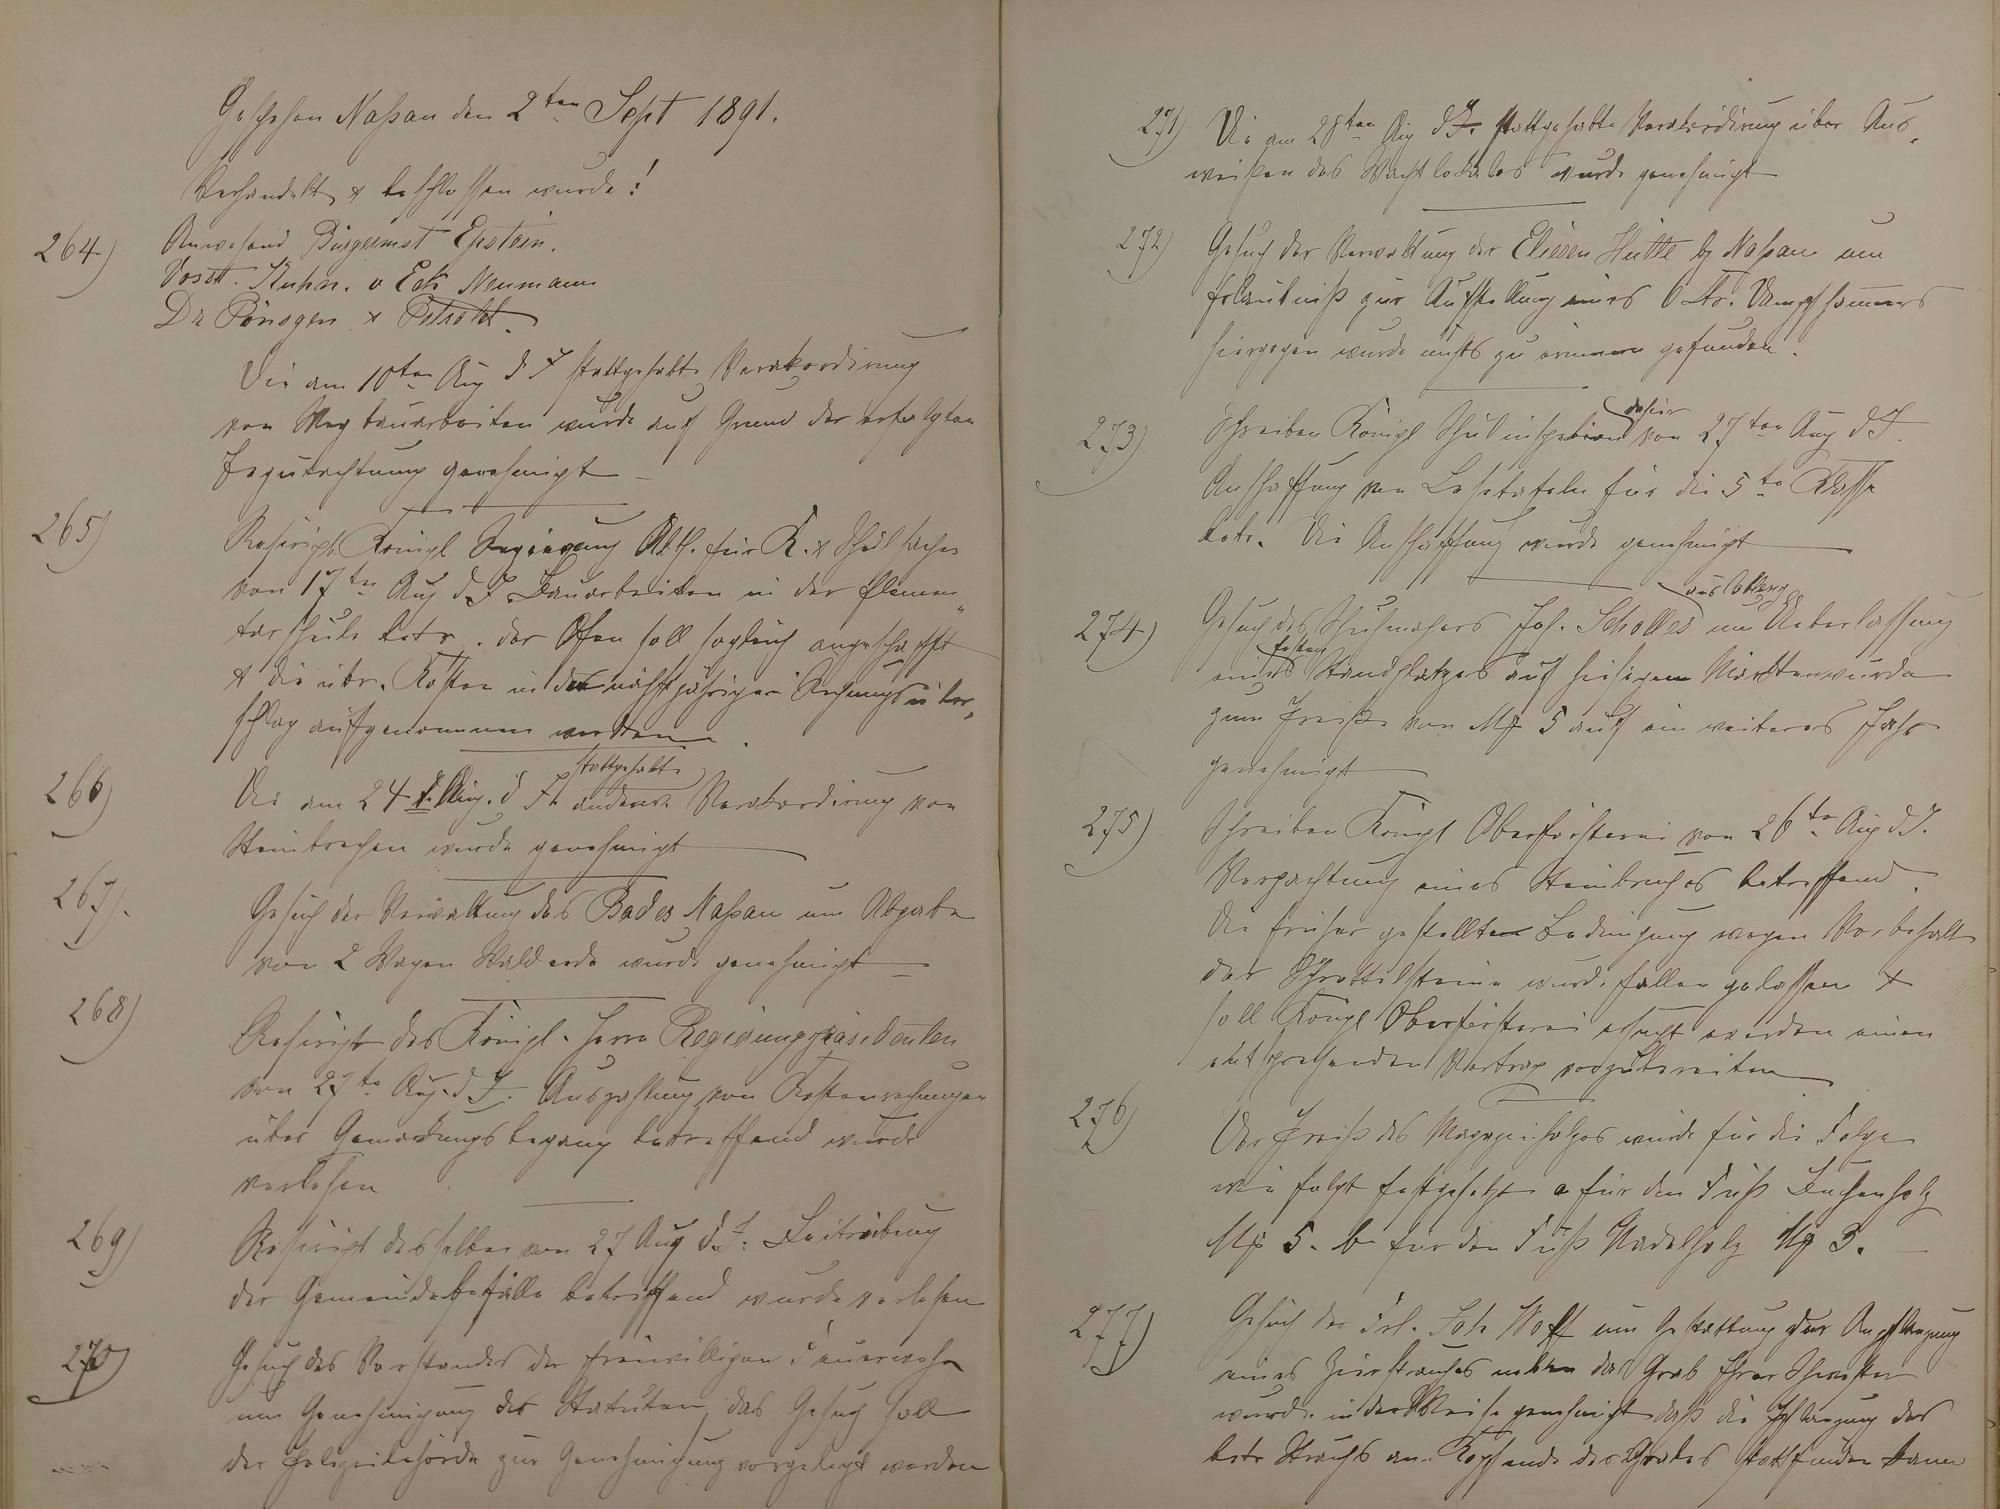 Geschehen Naßau den 2ten Sept 1891.
Verhandelt & beschlossen wurde!
264) Anwesend Bürgermst Epstein.
Vosen. Kuhn. v Eck Neumann
Dr Pönsgen &
Die am 10ten Aug d J stattgehabte Verakkordirung
von Wegbauarbeiten wurde auf Grund der erfolgten
Begutachtung genehmigt
265) Rescript Königl Regierung Abth. für K. & Schulsachen
von 17ten Aug d. J. Bauarbeiten in der Elemen„
tarschule betr. der Ofen soll sogleich angeschafft
& die übr. Kosten in den nächstjährigen Rechnungsüber„
schlag aufgenommen werden.
266) Die am 24 t. Aug. d J. stattgehabte anderw. Verakkordirung von
Steinbrechen wurde genehmigt
267). Gesuch der Verwaltung des Bades Naßau um Abgabe
von 2 Wagen Walderde wurde genehmigt
268) Rescript des Königl. Herrn Regierungspräsidenten
von 27te Aug. d J. Auszahlung von Kostenrechnungen
über Gemarkungsbegang betreffend wurde
verlesen
269) Rescript desselben von 27 Aug d. J. Beitreibung
der Gemeindegefälle betreffend wurde verlesen
270) Gesuch des Vorstandes der freiwilligen Feuerwehr
um Genehmigung der Statuten, das Gesuch soll
der Polizeibehörde zur Genehmigung vorgelegt werden
271) Die am 28ten Aug d J. stattgehabte Verakkordirung über Aus„
weißen des Wachtlokales wurde genehmigt
272) Gesuch der Verwaltung der Elisen Hütte b/ Naßau um
Erlaubniß zur Aufstellung eines 6 Ctr. Dampfhammers
hiergegen wurde nichts zu erinnern gefunden.
273) Schreiben Königl Schulinspection dahier von 27ten Aug d J.
Anschaffung von Lesetafeln für die 5te Klasse
betr. Die Anschaffung wurde genehmigt
274) Gesuch des Schuhmachers Joh. Scholles aus um Ueberlassung
eines festen Standplatzes auf hiesigem Märkten wurde
zum Preiße von Mk 5 auf ein weiteres Jahr
genehmigt
275) Schreiben Königl Oberförsterei von 26te Aug d J.
Verpachtung eines Steinbruches betreffend.
Die früher gestellten Bedingung wegen Vorbehalt
der Schrottelsteine wurde fallen gelassen &
soll Königl Oberförsterei ersucht werden einen
entsprechenden Vertrag vorzubereiten
276) Der Preiß des Magazinholzes wurde für die Folge
wie folgt festgesetzt a für den Fuß Buchenholz
Mk 5. b für den Fuß Nadelholz Mk 3.
277) Gesuch der Frl. um Gestattung der Anpflanzung
eines Zierstrauches neben das Grab Ihrer Schwester
wurde in der Weise genehmigt daß die Pflanzung des
betr Strauchs am Kopfende des Grabes stattfinden kann